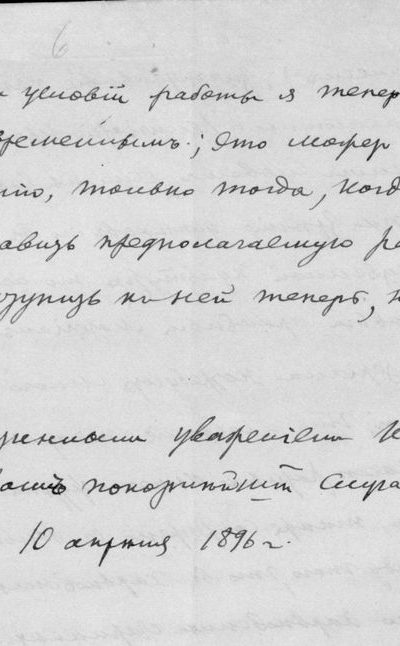 6
условій работы я тепер
временнымъ; это може
это, только тогда, когд
предполагаемую ра
къ ней теперь, н
уваженіемъ
Вашъ покорнѣйшій слуга
10 апрѣля 1896 г.